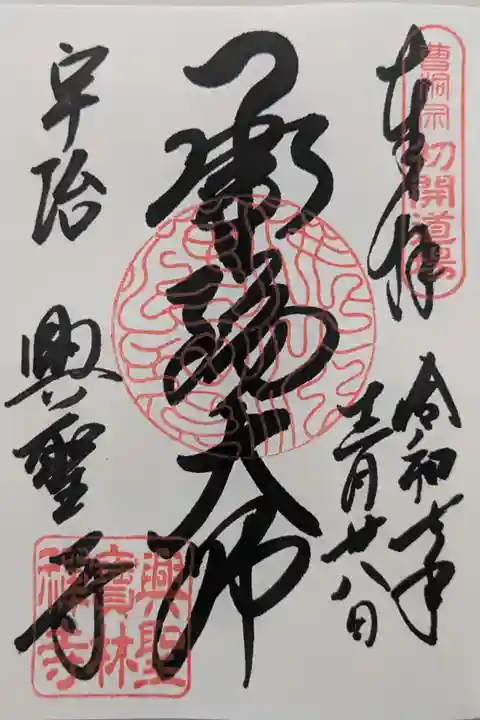 曹洞宗
初開道場
奉拝
令和
十二月廿八日
承陽大師
宇治
興聖寺
興聖
寶林
禪寺